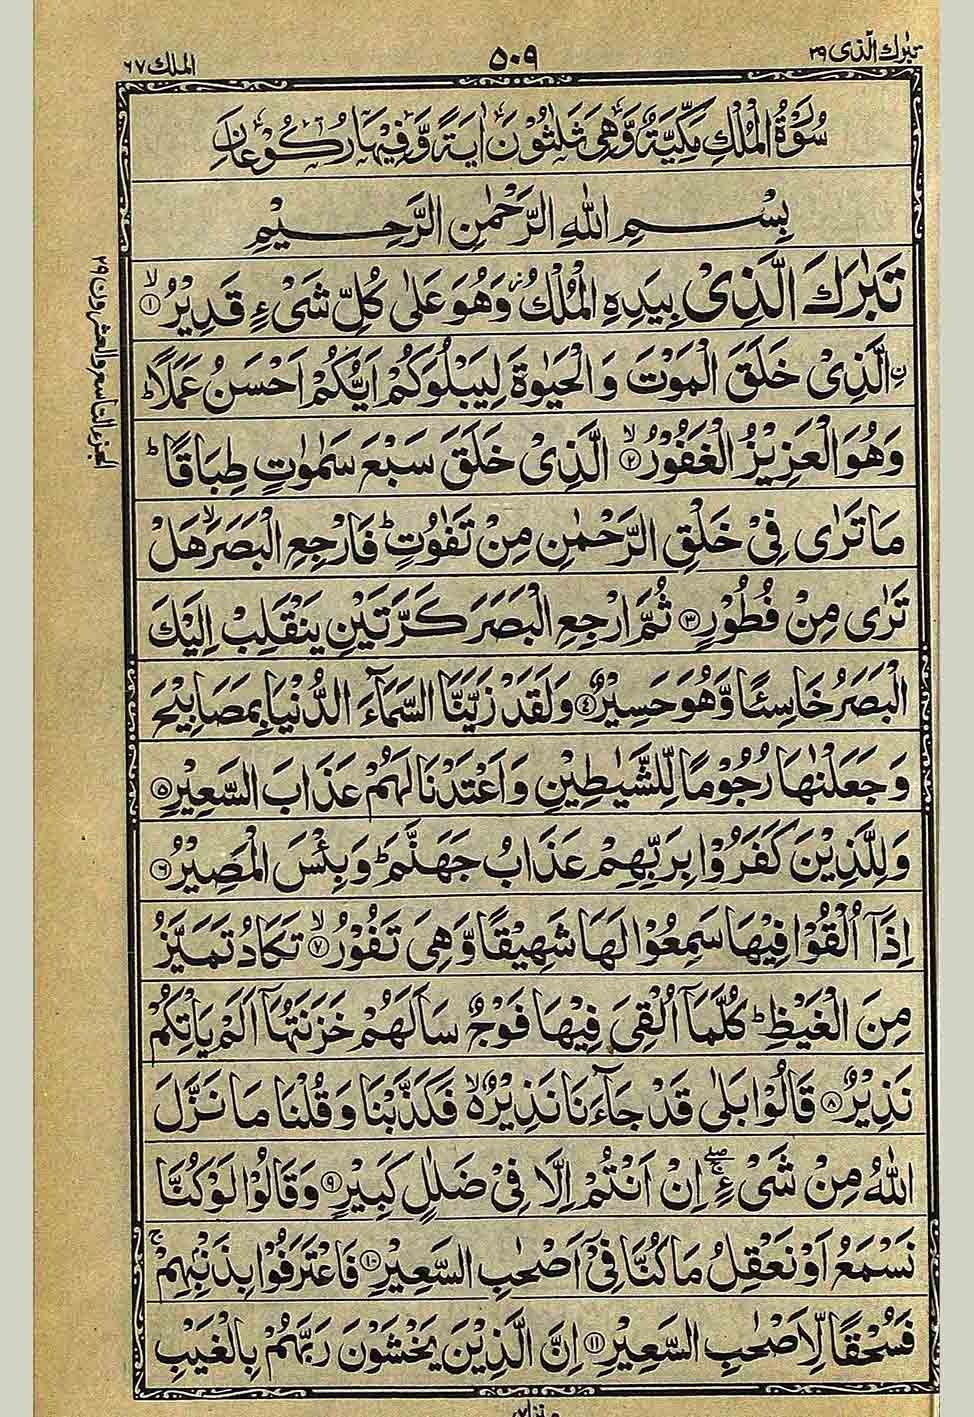 تبٰرك الّذى ٢٩
٥٠٩
الملك ٦٧
سُوْرَةُ الْمُلْكِ مَكِّيَّةٌ وَّهِىَ ثَلٰثُوْنَ اٰيَةً وَّفِيْهَا رُكُوْعَانِ
بِسْمِ اللهِ الرَّحْمٰنِ الرَّحِيْمِ
تَبٰرَكَ الَّذِىْ بِيَدِهِ الْمُلْكُ وَهُوَ عَلٰى كُلِّ شَىْءٍ قَدِيْرُ ۙ﴿١﴾
ۨالَّذِىْ خَلَقَ الْمَوْتَ وَالْحَيٰوةَ لِيَبْلُوَكُمْ اَيُّكُمْ اَحْسَنُ عَمَلًا ؕ
وَهُوَ الْعَزِيْزُ الْغَفُوْرُ ۙ﴿٢﴾ الَّذِىْ خَلَقَ سَبْعَ سَمٰوٰتٍ طِبَاقًا ؕ
مَا تَرٰى فِىْ خَلْقِ الرَّحْمٰنِ مِنْ تَفٰوُتٍ ؕ فَارْجِعِ الْبَصَرَ ۙ هَلْ
تَرٰى مِنْ فُطُوْرٍ ﴿٣﴾ ثُمَّ ارْجِعِ الْبَصَرَ كَرَّتَيْنِ يَنْقَلِبْ اِلَيْكَ
الْبَصَرُ خَاسِئًا وَّهُوَ حَسِيْرٌ ﴿٤﴾ وَلَقَدْ زَيَّنَّا السَّمَآءَ الدُّنْيَا بِمَصَابِيْحَ
وَجَعَلْنٰهَا رُجُوْمًا لِّلشَّيٰطِيْنِ وَاَعْتَدْنَا لَهُمْ عَذَابَ السَّعِيْرِ ﴿٥﴾
وَلِلَّذِيْنَ كَفَرُوْا بِرَبِّهِمْ عَذَابُ جَهَنَّمَ ؕ وَبِئْسَ الْمَصِيْرُ ﴿٦﴾
اِذَآ اُلْقُوْا فِيْهَا سَمِعُوْا لَهَا شَهِيْقًا وَّهِىَ تَفُوْرُ ۙ﴿٧﴾ تَكَادُ تَمَيَّزُ
مِنَ الْغَيْظِ ؕ كُلَّمَآ اُلْقِىَ فِيْهَا فَوْجٌ سَاَلَهُمْ خَزَنَتُهَآ اَلَمْ يَاْتِكُمْ
نَذِيْرٌ ﴿٨﴾ قَالُوْا بَلٰى قَدْ جَآءَنَا نَذِيْرٌ ۙ فَكَذَّبْنَا وَقُلْنَا مَا نَزَّلَ
اللهُ مِنْ شَىْءٍ ۚۖ اِنْ اَنْتُمْ اِلَّا فِىْ ضَلٰلٍ كَبِيْرٍ ﴿٩﴾ وَقَالُوْا لَوْ كُنَّا
نَسْمَعُ اَوْ نَعْقِلُ مَا كُنَّا فِىْٓ اَصْحٰبِ السَّعِيْرِ ﴿١٠﴾ فَاعْتَرَفُوْا بِذَنْۢبِهِمْ ۚ
فَسُحْقًا لِّاَصْحٰبِ السَّعِيْرِ ﴿١١﴾ اِنَّ الَّذِيْنَ يَخْشَوْنَ رَبَّهُمْ بِالْغَيْبِ
الجزء التاسع والعشرون (٢٩)